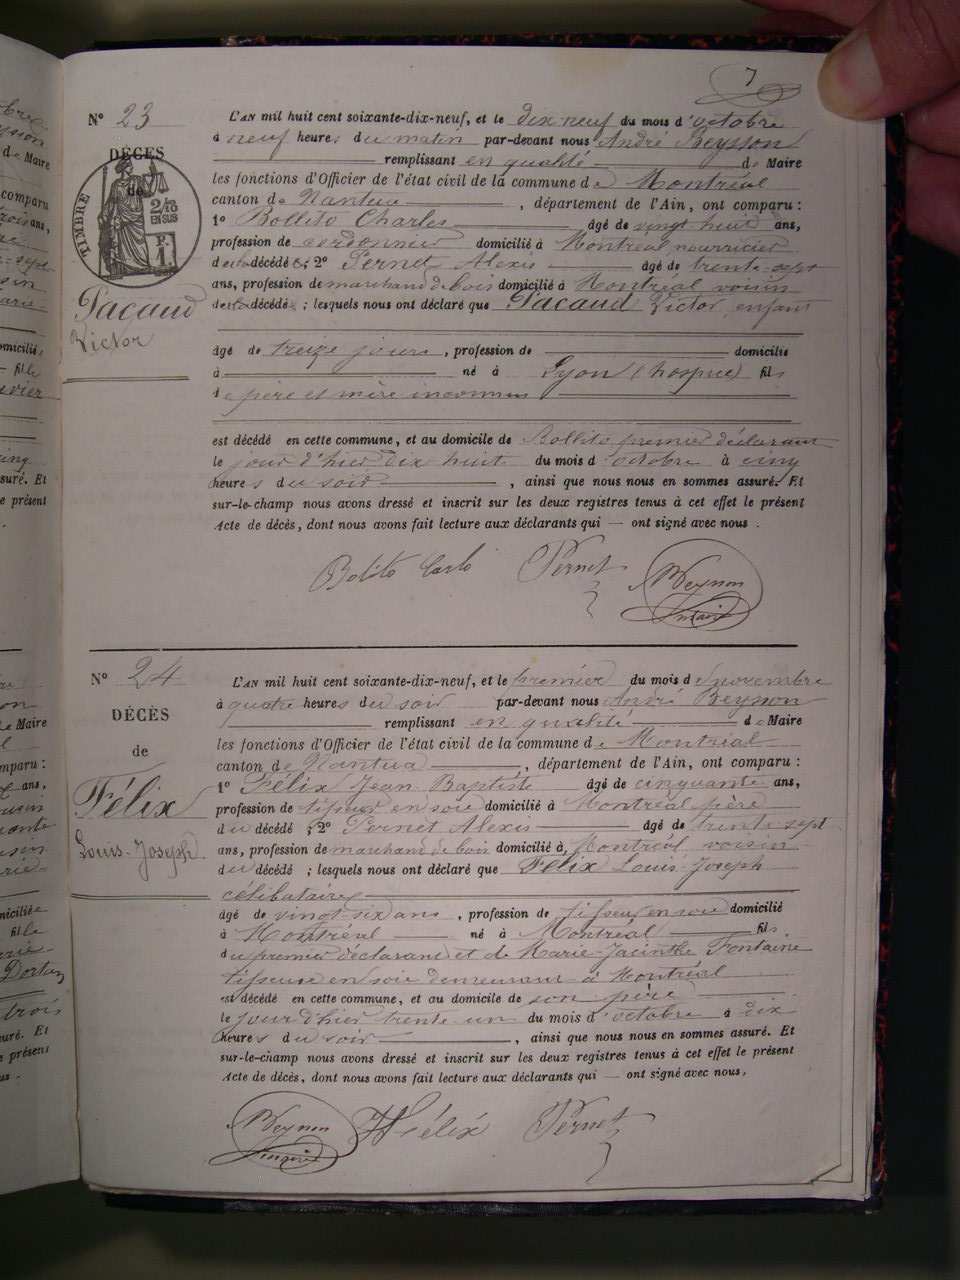 7
N° 23
DÉCÈS
de
TIMBRE
2/10
EN SUS
Pacaud
Victor
L'AN mil huit cent soixante-dix-neuf, et le dix neuf du mois d'octobre
à neuf heures du matin par-devant nous André Beynon
remplissant en qualité de Maire
les fonctions d'Officier de l'état civil de la commune de Montréal
canton de Nantua, département de l'Ain, ont comparu :
1° Bollito Charles âgé de vingt huit ans,
profession de cordonnier domicilié à Montréal nourricier
du décédé ; 2° Pernet Alexis âgé de trente-sept
ans, profession de marchand de bois domicilié à Montréal voisin
du décédé ; lesquels nous ont déclaré que Pacaud Victor enfant
âgé de treize jours, profession de domicilié
à né à Lyon (hospice) fils
de père et mère inconnus
est décédé en cette commune, et au domicile de Bollito premier déclarant
le jour d'hier dix huit du mois d'octobre à cinq
heures du soir, ainsi que nous nous en sommes assuré. Et
sur-le-champ nous avons dressé et inscrit sur les deux registres tenus à cet effet le présent
Acte de décès, dont nous avons fait lecture aux déclarants qui — ont signé avec nous.
Bolito Carlo Pernet Beynon
N° 24
DÉCÈS
de
Félix
Louis-Joseph
L'AN mil huit cent soixante-dix-neuf, et le premier du mois de novembre
à quatre heures du soir par-devant nous André Beynon
remplissant en qualité de Maire
les fonctions d'Officier de l'état civil de la commune de Montréal
canton de Nantua, département de l'Ain, ont comparu :
1° Félix Jean Baptiste âgé de cinquante ans,
profession de tisseur en soie domicilié à Montréal père
du décédé ; 2° Pernet Alexis âgé de trente-sept
ans, profession de marchand de bois domicilié à Montréal voisin
du décédé ; lesquels nous ont déclaré que Félix Louis-Joseph
célibataire
âgé de vingt-six ans, profession de tisseur en soie domicilié
à Montréal né à Montréal fils
du premier déclarant et de Marie-Jacinthe Fontaine
tisseuse en soie demeurant à Montréal
est décédé en cette commune, et au domicile de son père
le jour d'hier trente un du mois d'octobre à dix
heures du soir, ainsi que nous nous en sommes assuré. Et
sur-le-champ nous avons dressé et inscrit sur les deux registres tenus à cet effet le présent
Acte de décès, dont nous avons fait lecture aux déclarants qui — ont signé avec nous.
Beynon Félix Pernet